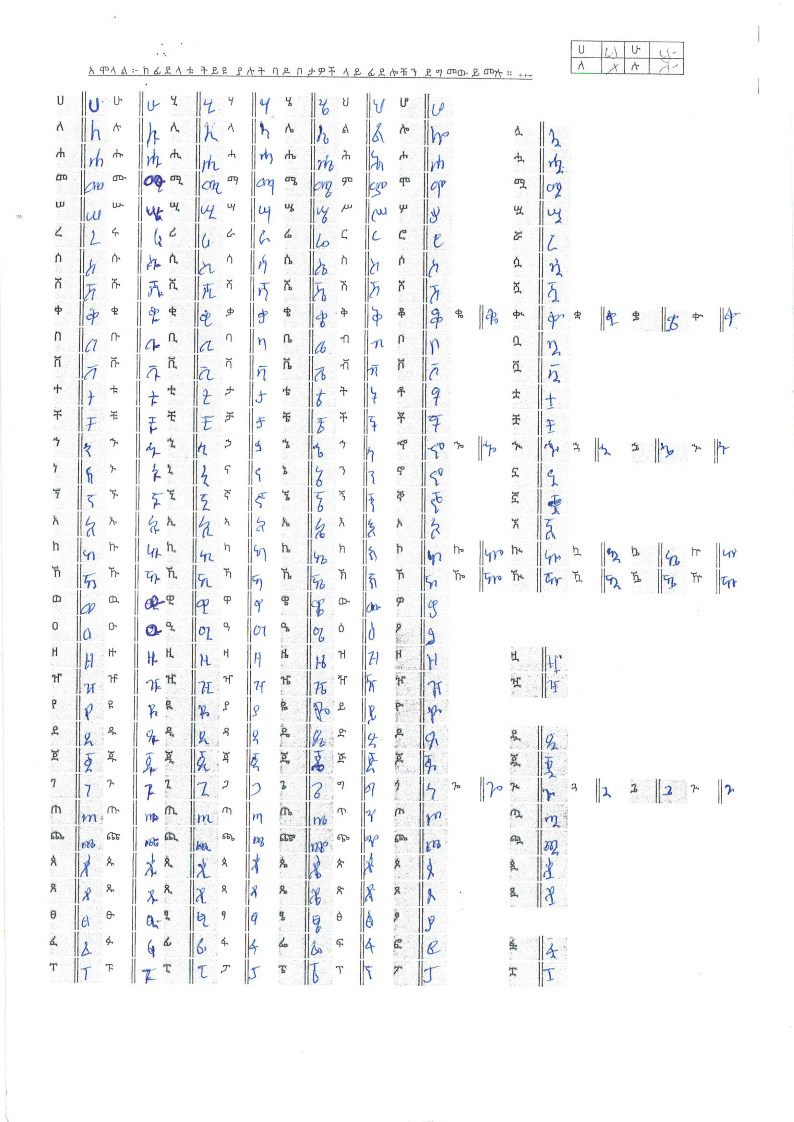 ሀ ሀ ሁ ሁ
ለ ለ ሉ ሉ
አሞላል፡- ከፊደላቱ ትይዩ ያሉት ባዶ ቦታዎች ላይ ፊደሎቹን ደግመው ይሙሉ። ...
ሀ ሀ ሁ ሁ ሂ ሂ ሃ ሃ ሄ ሄ ህ ህ ሆ ሆ
ለ ለ ሉ ሉ ሊ ሊ ላ ላ ሌ ሌ ል ል ሎ ሎ ሏ ሏ
ሐ ሐ ሑ ሑ ሒ ሒ ሓ ሓ ሔ ሔ ሕ ሕ ሖ ሖ ሗ ሗ
መ መ ሙ ሙ ሚ ሚ ማ ማ ሜ ሜ ም ም ሞ ሞ ሟ ሟ
ሠ ሠ ሡ ሡ ሢ ሢ ሣ ሣ ሤ ሤ ሥ ሥ ሦ ሦ ሧ ሧ
ረ ረ ሩ ሩ ሪ ሪ ራ ራ ሬ ሬ ር ር ሮ ሮ ሯ ሯ
ሰ ሰ ሱ ሱ ሲ ሲ ሳ ሳ ሴ ሴ ስ ስ ሶ ሶ ሷ ሷ
ሸ ሸ ሹ ሹ ሺ ሺ ሻ ሻ ሼ ሼ ሽ ሽ ሾ ሾ ሿ ሿ
ቀ ቀ ቁ ቁ ቂ ቂ ቃ ቃ ቄ ቄ ቅ ቅ ቆ ቆ ቈ ቈ ቊ ቊ ቋ ቋ ቌ ቌ ቍ ቍ
በ በ ቡ ቡ ቢ ቢ ባ ባ ቤ ቤ ብ ብ ቦ ቦ ቧ ቧ
ሸ ሸ ሹ ሹ ቪ ቪ ሻ ሻ ቬ ቬ ቭ ቭ ቮ ቮ ቯ ቯ
ተ ተ ቱ ቱ ቲ ቲ ታ ታ ቴ ቴ ት ት ቶ ቶ ቷ ቷ
ቸ ቸ ቹ ቹ ቺ ቺ ቻ ቻ ቼ ቼ ች ች ቾ ቾ ቿ ቿ
ኀ ኀ ኁ ኁ ኂ ኂ ኃ ኃ ኄ ኄ ኅ ኅ ኆ ኆ ኈ ኈ ኊ ኊ ኋ ኋ ኌ ኌ ኍ ኍ
ነ ነ ኑ ኑ ኒ ኒ ና ና ኔ ኔ ን ን ኖ ኖ ኗ ኗ
ኘ ኘ ኙ ኙ ኚ ኚ ኛ ኛ ኜ ኜ ኝ ኝ ኞ ኞ ኟ ኟ
አ አ ኡ ኡ ኢ ኢ ኣ ኣ ኤ ኤ እ እ ኦ ኦ ኧ ኧ
ከ ከ ኩ ኩ ኪ ኪ ካ ካ ኬ ኬ ክ ክ ኮ ኮ ኰ ኰ ኲ ኲ ኳ ኳ ኴ ኴ ኵ ኵ
ኸ ኸ ኹ ኹ ኺ ኺ ኻ ኻ ኼ ኼ ኽ ኽ ኾ ኾ ዀ ዀ ዂ ዂ ዃ ዃ ዄ ዄ ዅ ዅ
ወ ወ ዉ ዉ ዊ ዊ ዋ ዋ ዌ ዌ ው ው ዎ ዎ
ዐ ዐ ዑ ዑ ዒ ዒ ዓ ዓ ዔ ዔ ዕ ዕ ዖ ዖ
ዘ ዘ ዙ ዙ ዚ ዚ ዛ ዛ ዜ ዜ ዝ ዝ ዞ ዞ ዟ ዟ
ዠ ዠ ዡ ዡ ዢ ዢ ዣ ዣ ዤ ዤ ዥ ዥ ዦ ዦ ዧ ዧ
የ የ ዩ ዩ ዪ ዪ ያ ያ ዬ ዬ ይ ይ ዮ ዮ
ደ ደ ዱ ዱ ዲ ዲ ዳ ዳ ዴ ዴ ድ ድ ዶ ዶ ዷ ዷ
ጀ ጀ ጁ ጁ ጂ ጂ ጃ ጃ ጄ ጄ ጅ ጅ ጆ ጆ ጇ ጇ
ገ ገ ጉ ጉ ጊ ጊ ጋ ጋ ጌ ጌ ግ ግ ጎ ጎ ጐ ጐ ጒ ጒ ጓ ጓ ጔ ጔ ጕ ጕ
ጠ ጠ ጡ ጡ ጢ ጢ ጣ ጣ ጤ ጤ ጥ ጥ ጦ ጦ ጧ ጧ
ጨ ጨ ጩ ጩ ጪ ጪ ጫ ጫ ጬ ጬ ጭ ጭ ጮ ጮ ጯ ጯ
ጰ ጰ ጱ ጱ ጲ ጲ ጳ ጳ ጴ ጴ ጵ ጵ ጶ ጶ ጷ ጷ
ጸ ጸ ጹ ጹ ጺ ጺ ጻ ጻ ጼ ጼ ጽ ጽ ጾ ጾ ጿ ጿ
ፀ ፀ ፁ ፁ ፂ ፂ ፃ ፃ ፄ ፄ ፅ ፅ ፆ ፆ
ፈ ፈ ፉ ፉ ፊ ፊ ፋ ፋ ፌ ፌ ፍ ፍ ፎ ፎ ፏ ፏ
ፐ ፐ ፑ ፑ ፒ ፒ ፓ ፓ ፔ ፔ ፕ ፕ ፖ ፖ ፗ ፗ